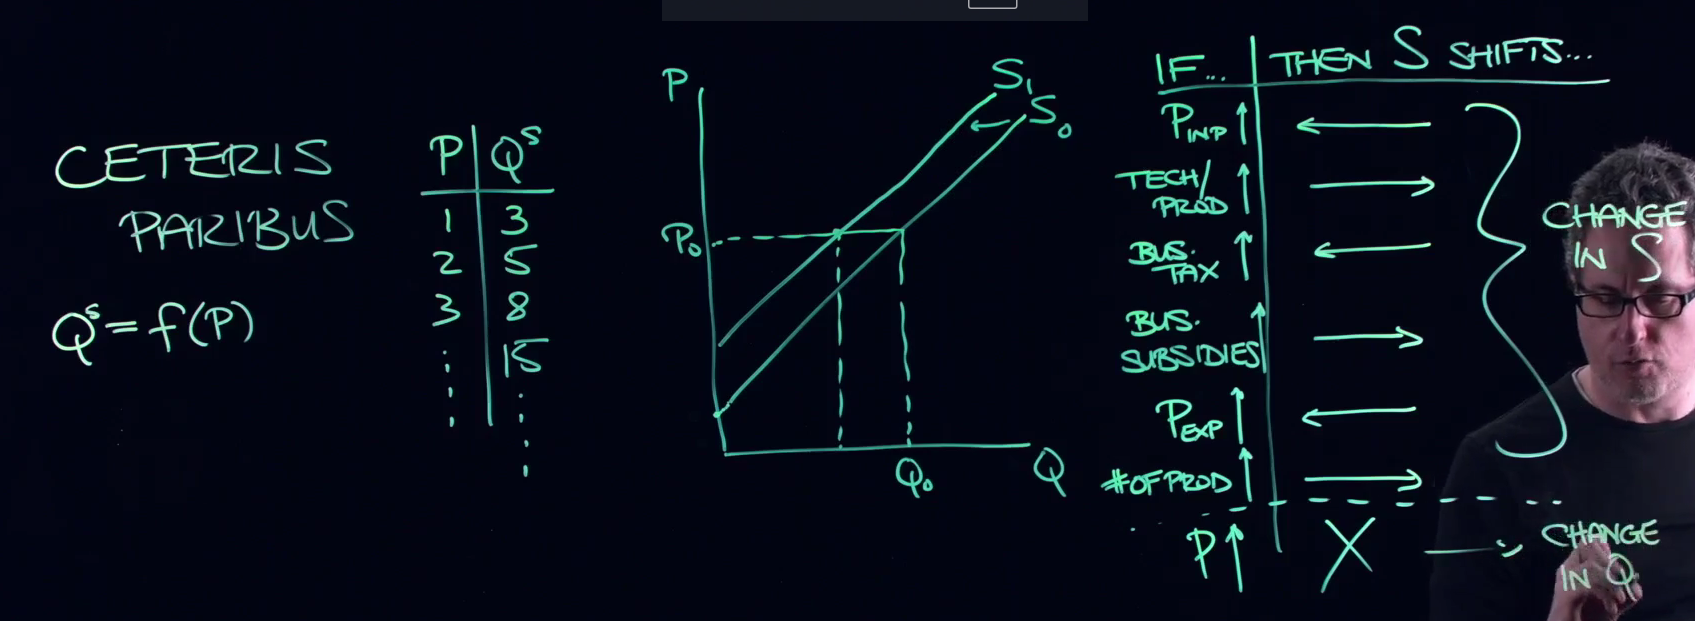 CETERIS
PARIBUS
Qˢ = f(P)
P Qˢ
1 3
2 5
3 8
⋮ 15
⋮
P
S₁
S₀
P₀
Q₀
Q
IF... THEN S SHIFTS...
P_INP ↑ ←
TECH/
PROD ↑ →
BUS.
TAX ↑ ←
BUS.
SUBSIDIES ↑ →
P_EXP ↑ ←
# OF PROD ↑ →
CHANGE
IN S
P ↑ X →
CHANGE
IN Q